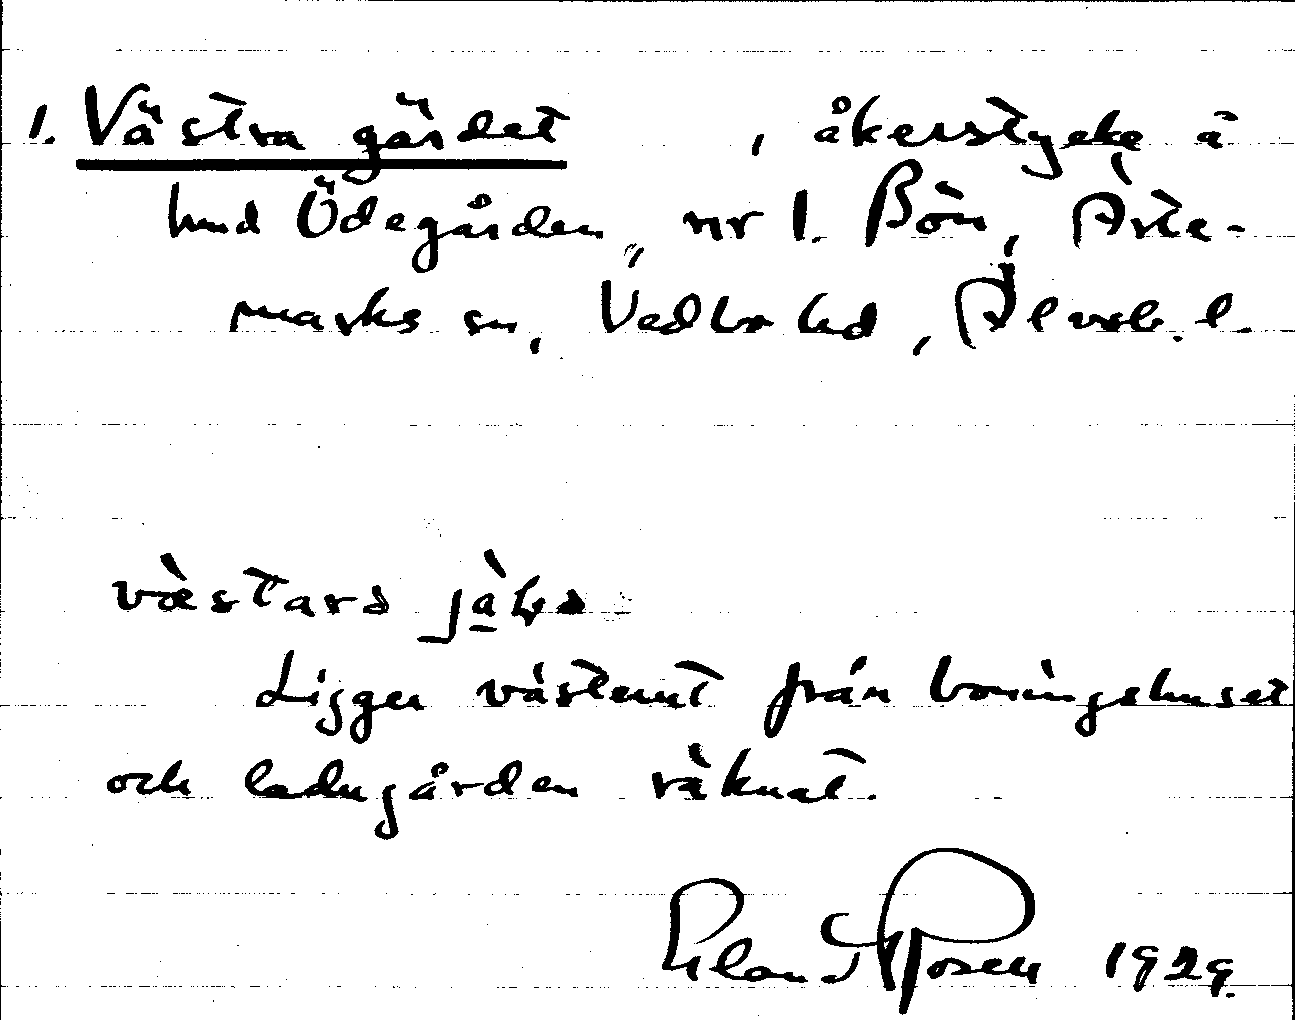 1. Västra gärdet, åkerstycke å
hmd Ödegården, nr 1. Bön, Årte-
marks sn, Vedbo hd, Älvsb. l.
væstarə jàḷə
Ligger västerut från boningshuset
och ladugården räknat.
Rosén 1929.